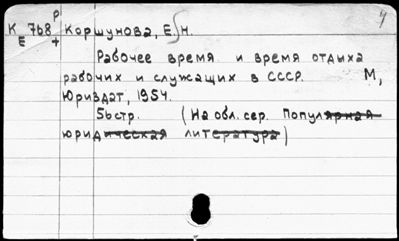 К 768 Р Коршунова, Е. Н.
Е +
Рабочее время и время отдыха
рабочих и служащих в СССР. М,
Юриздат, 1954.
56стр. (На обл. сер. Популярная
юридическая литература)